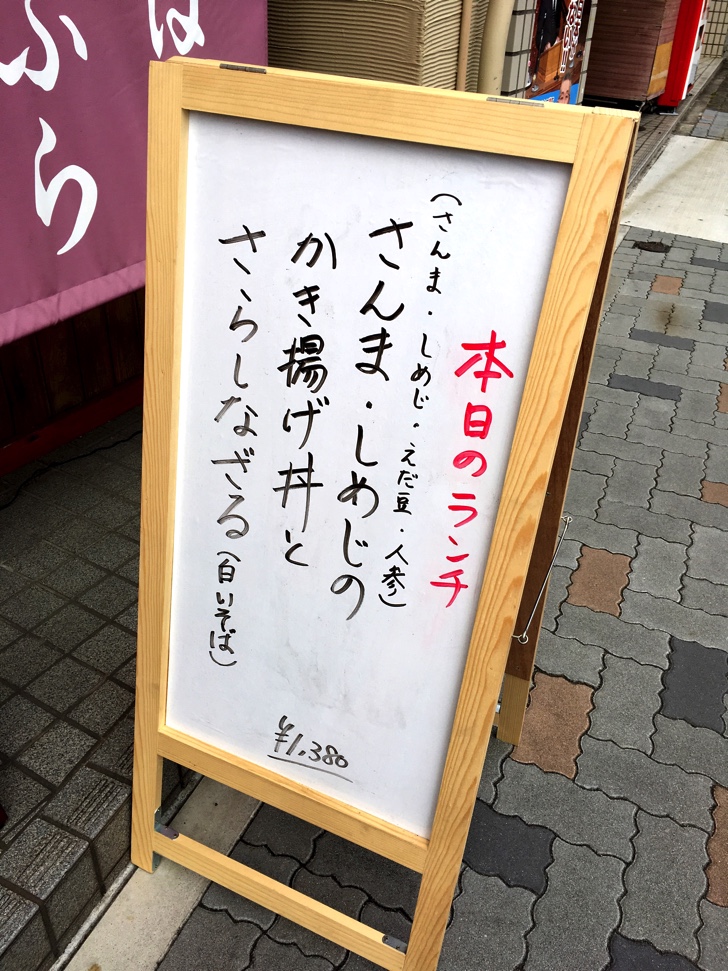 本日のランチ
(さんま・しめじ・えだ豆・人参)
さんま・しめじの
かき揚げ丼と
さらしなざる(白いそば)
¥1,380
ふら